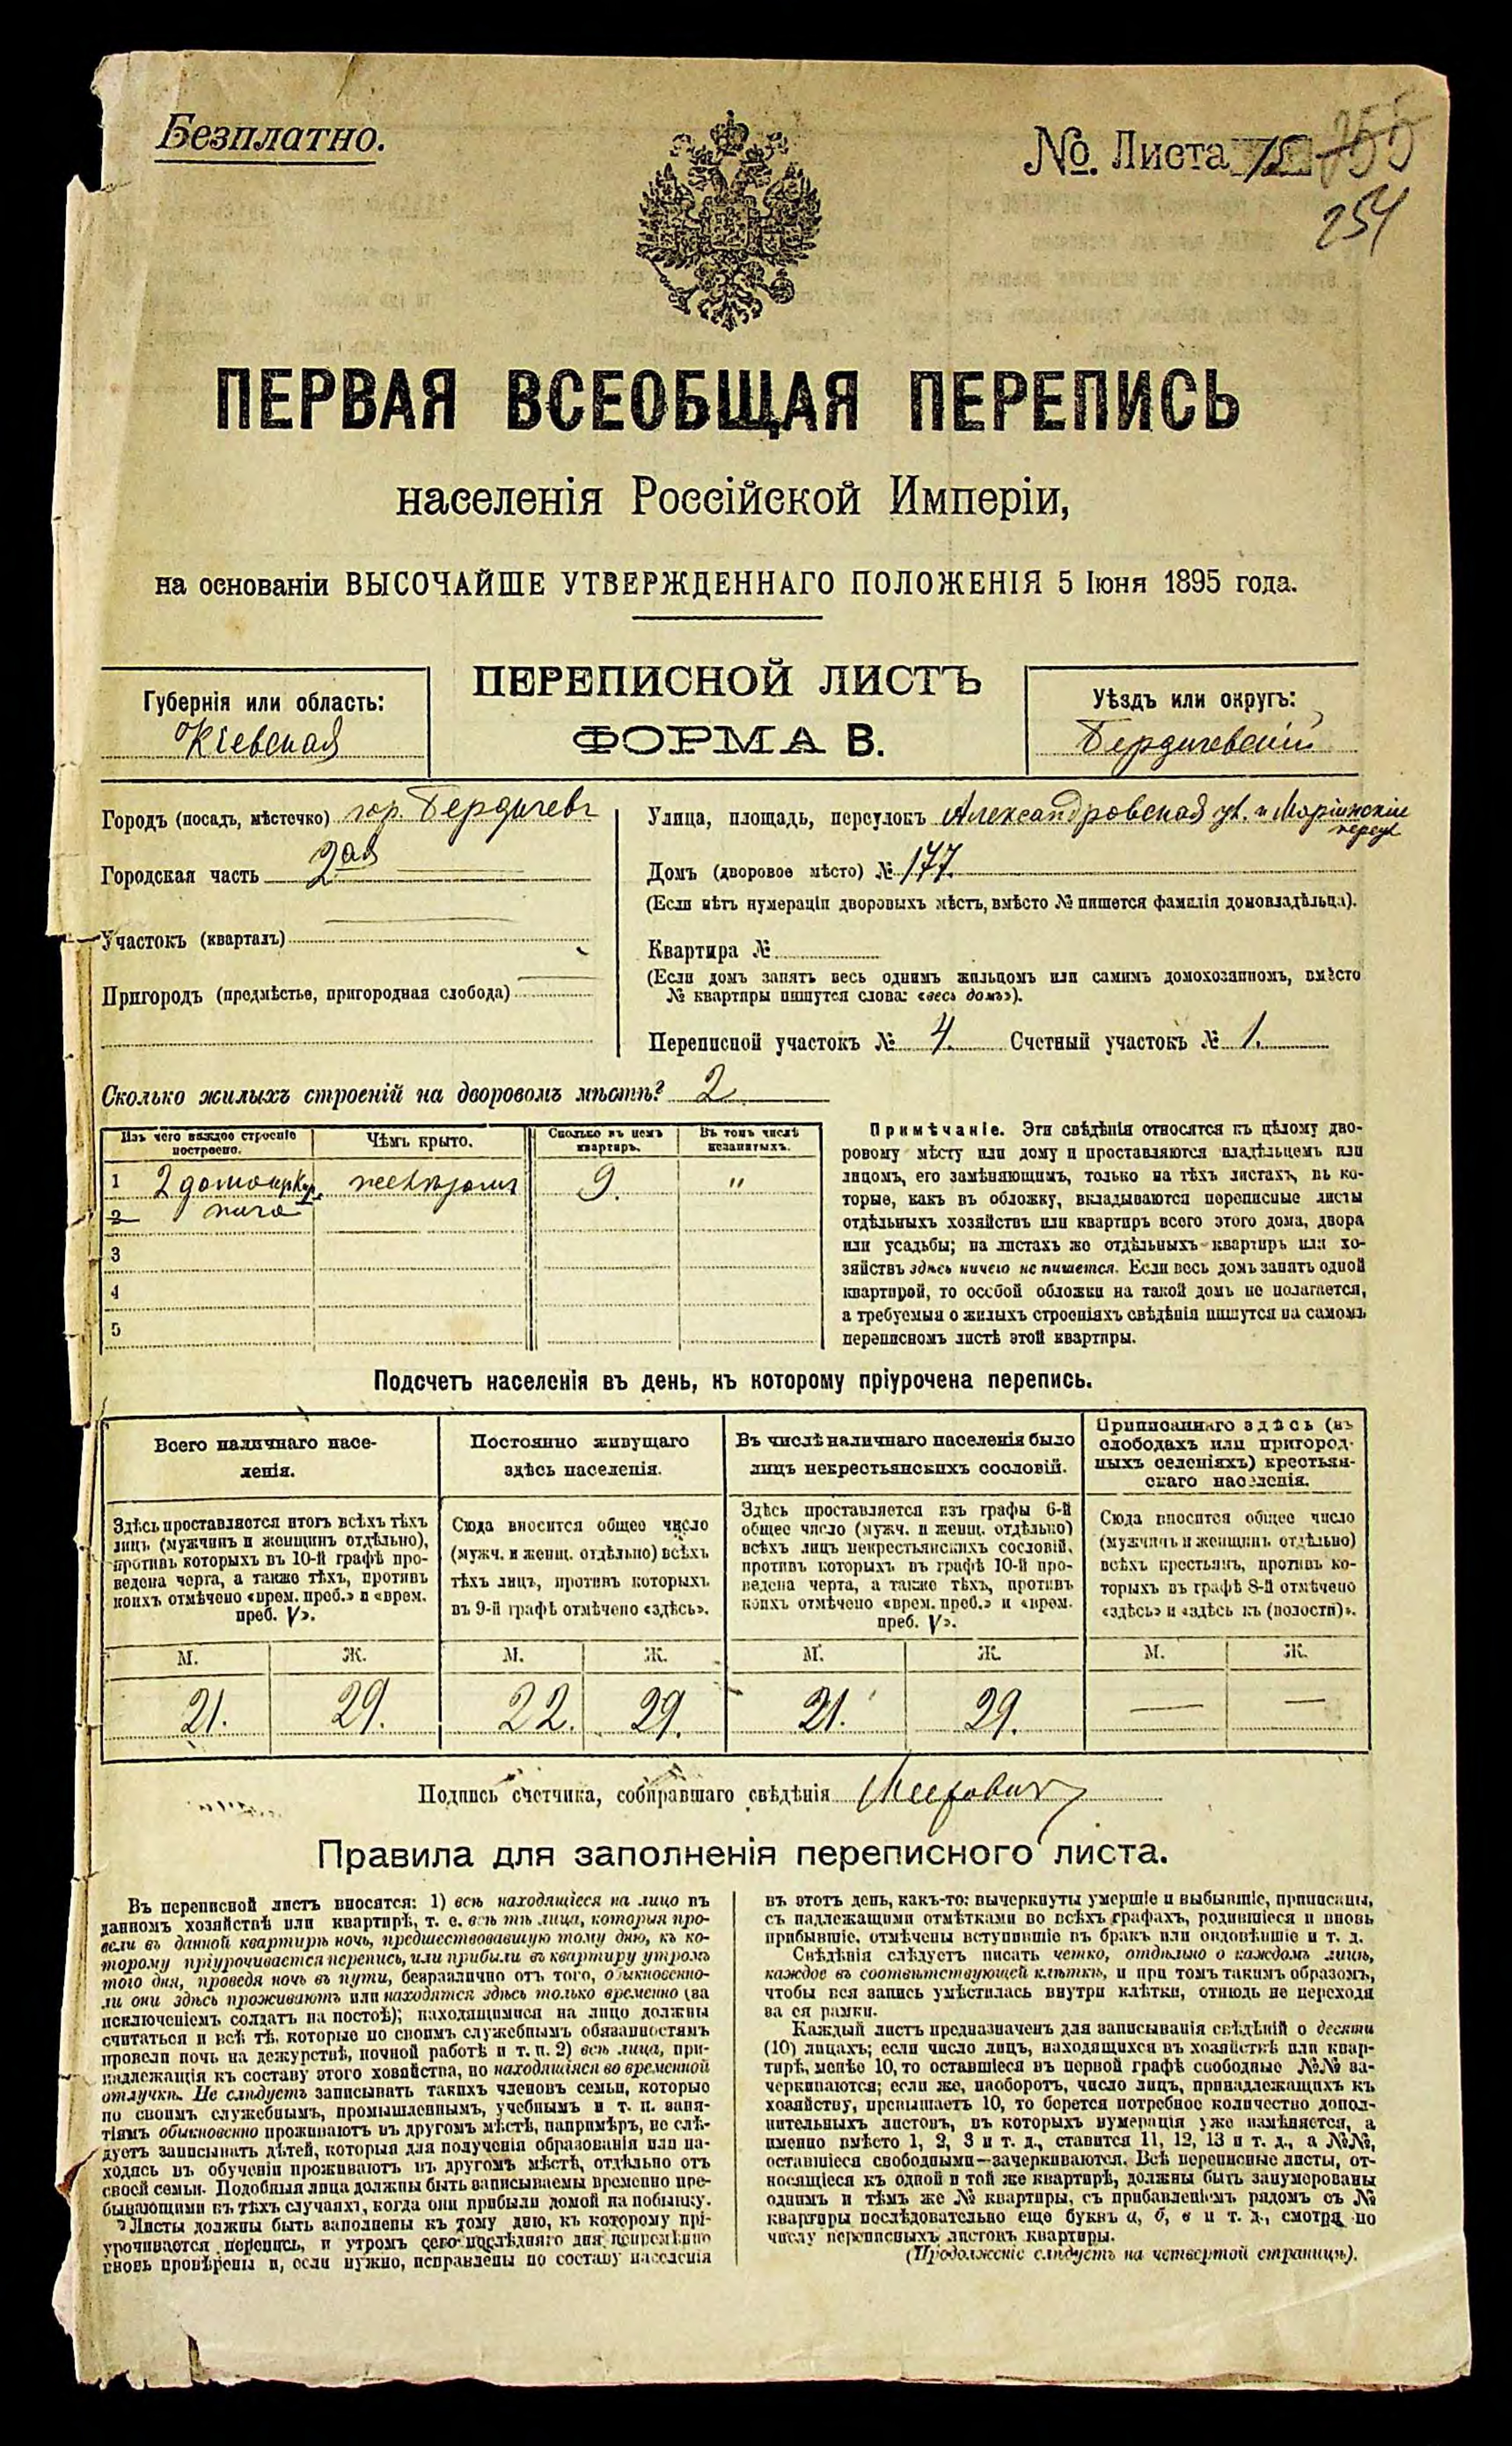 Безплатно.
№. Листа 15 255
254
ПЕРВАЯ ВСЕОБЩАЯ ПЕРЕПИСЬ
населенія Россійской Имперіи,
на основаніи ВЫСОЧАЙШЕ УТВЕРЖДЕННАГО ПОЛОЖЕНІЯ 5 Іюня 1895 года.
ПЕРЕПИСНОЙ ЛИСТЪ
ФОРМА В.
Губернія или область:
Кіевская
Уѣздъ или округъ:
Бердичевскій
Городъ (посадъ, мѣстечко) гор. Бердичевъ
Городская часть 2ая
Участокъ (кварталъ)
Пригородъ (предмѣстье, пригородная слобода)
Улица, площадь, переулокъ Александровская ул. и Маріинскій
переул
Домъ (дворовое мѣсто) № 177.
(Если нѣтъ нумераціи дворовыхъ мѣстъ, вмѣсто № пишется фамилія домовладѣльца).
Квартира №
(Если домъ занятъ весь однимъ жильцомъ или самимъ домохозяиномъ, вмѣсто
№ квартиры пишутся слова: «весь домъ»).
Переписной участокъ № 4. Счетный участокъ № 1.
Сколько жилыхъ строеній на дворовомъ мѣстѣ? 2
Изъ чего каждое строеніе
построено.
Чѣмъ крыто.
Сколько въ немъ
квартиръ.
Въ томъ числѣ
незанятыхъ.
1 2 дома 9. "
2
3
4
5
Примѣчаніе. Эти свѣдѣнія относятся къ цѣлому дво-
ровому мѣсту или дому и проставляются владѣльцемъ или
лицомъ, его замѣняющимъ, только на тѣхъ листахъ, въ ко-
торые, какъ въ обложку, вкладываются переписные листы
отдѣльныхъ хозяйствъ или квартиръ всего этого дома, двора
или усадьбы; на листахъ же отдѣльныхъ квартиръ или хо-
зяйствъ здѣсь ничего не пишется. Если весь домъ занятъ одной
квартирой, то особой обложки на такой домъ не полагается,
а требуемыя о жилыхъ строеніяхъ свѣдѣнія пишутся на самомъ
переписномъ листѣ этой квартиры.
Подсчетъ населенія въ день, къ которому пріурочена перепись.
Всего наличнаго насе-
ленія.
Постоянно живущаго
здѣсь населенія.
Въ числѣ наличнаго населенія было
лицъ некрестьянскихъ сословій.
Приписаннаго здѣсь (въ
слободахъ или пригород-
ныхъ селеніяхъ) крестьян-
скаго населенія.
Здѣсь проставляется итогъ всѣхъ тѣхъ
лицъ (мужчинъ и женщинъ отдѣльно),
противъ которыхъ въ 10-й графѣ про-
ведена черта, а также тѣхъ, противъ
коихъ отмѣчено «врем. преб.» и «врем.
преб. V».
Сюда вносится общее число
(мужч. и женщ. отдѣльно) всѣхъ
тѣхъ лицъ, противъ которыхъ
въ 9-й графѣ отмѣчено «здѣсь».
Здѣсь проставляется изъ графы 6-й
общее число (мужч. и женщ. отдѣльно)
всѣхъ лицъ некрестьянскихъ сословій,
противъ которыхъ въ графѣ 10-й про-
ведена черта, а также тѣхъ, противъ
коихъ отмѣчено «врем. преб.» и «врем.
преб. V».
Сюда вносится общее число
(мужчинъ и женщинъ отдѣльно)
всѣхъ крестьянъ, противъ ко-
торыхъ въ графѣ 8-й отмѣчено
«здѣсь» и «здѣсь къ (волости)».
М. Ж. М. Ж. М. Ж. М. Ж.
21. 29. 22. 29. 21. 29. — —
Подпись счетчика, собиравшаго свѣдѣнія
Правила для заполненія переписного листа.
Въ переписной листъ вносятся: 1) всѣ находящіеся на лицо въ
данномъ хозяйствѣ или квартирѣ, т. е. всѣ тѣ лица, которыя про-
вели въ данной квартирѣ ночь, предшествовавшую тому дню, къ ко-
торому пріурочивается перепись, или прибыли въ квартиру утромъ
того дня, проведя ночь въ пути, безразлично отъ того, обыкновенно-
ли они здѣсь проживаютъ или находятся здѣсь только временно (за
исключеніемъ солдатъ на постоѣ); находящимися на лицо должны
считаться и всѣ тѣ, которые по своимъ служебнымъ обязанностямъ
провели ночь на дежурствѣ, ночной работѣ и т. п. 2) всѣ лица, при-
надлежащія къ составу этого хозяйства, но находящіяся во временной
отлучкѣ. Не слѣдуетъ записывать такихъ членовъ семьи, которые
по своимъ служебнымъ, промышленнымъ, учебнымъ и т. п. заня-
тіямъ обыкновенно проживаютъ въ другомъ мѣстѣ, напримѣръ, не слѣ-
дуетъ записывать дѣтей, которыя для полученія образованія или на-
ходясь въ обученіи проживаютъ въ другомъ мѣстѣ, отдѣльно отъ
своей семьи. Подобныя лица должны быть записываемы временно пре-
бывающими въ тѣхъ случаяхъ, когда они прибыли домой на побывку.
Листы должны быть заполнены къ тому дню, къ которому прі-
урочивается перепись, и утромъ сего послѣдняго дня непремѣнно
вновь провѣрены и, если нужно, исправлены по составу населенія
въ этотъ день, какъ-то: вычеркнуты умершіе и выбывшіе, приписаны,
съ надлежащими отмѣтками во всѣхъ графахъ, родившіеся и вновь
прибывшіе, отмѣчены вступившіе въ бракъ или овдовѣвшіе и т. д.
Свѣдѣнія слѣдуетъ писать четко, отдѣльно о каждомъ лицѣ,
каждое въ соотвѣтствующей клѣткѣ, и при томъ такимъ образомъ,
чтобы вся запись умѣстилась внутри клѣтки, отнюдь не переходя
за ея рамки.
Каждый листъ предназначенъ для записыванія свѣдѣній о десяти
(10) лицахъ; если число лицъ, находящихся въ хозяйствѣ или квар-
тирѣ, менѣе 10, то оставшіеся въ первой графѣ свободные №№ за-
черкиваются; если же, наоборотъ, число лицъ, принадлежащихъ къ
хозяйству, превышаетъ 10, то берется потребное количество допол-
нительныхъ листовъ, въ которыхъ нумерація уже измѣняется, а
именно вмѣсто 1, 2, 3 и т. д., ставится 11, 12, 13 и т. д., а №№,
оставшіеся свободными—зачеркиваются. Всѣ переписные листы, от-
носящіеся къ одной и той же квартирѣ, должны быть занумерованы
однимъ и тѣмъ же № квартиры, съ прибавленіемъ рядомъ съ №
квартиры послѣдовательно еще буквъ а, б, в и т. д., смотря по
числу переписныхъ листовъ квартиры.
(Продолженіе слѣдуетъ на четвертой страницѣ).